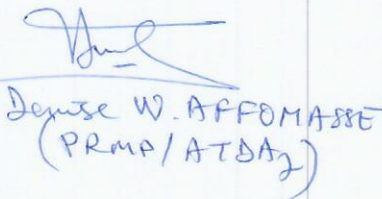 Denise W. AFFOMASSE
(PRMP/ATDA7)